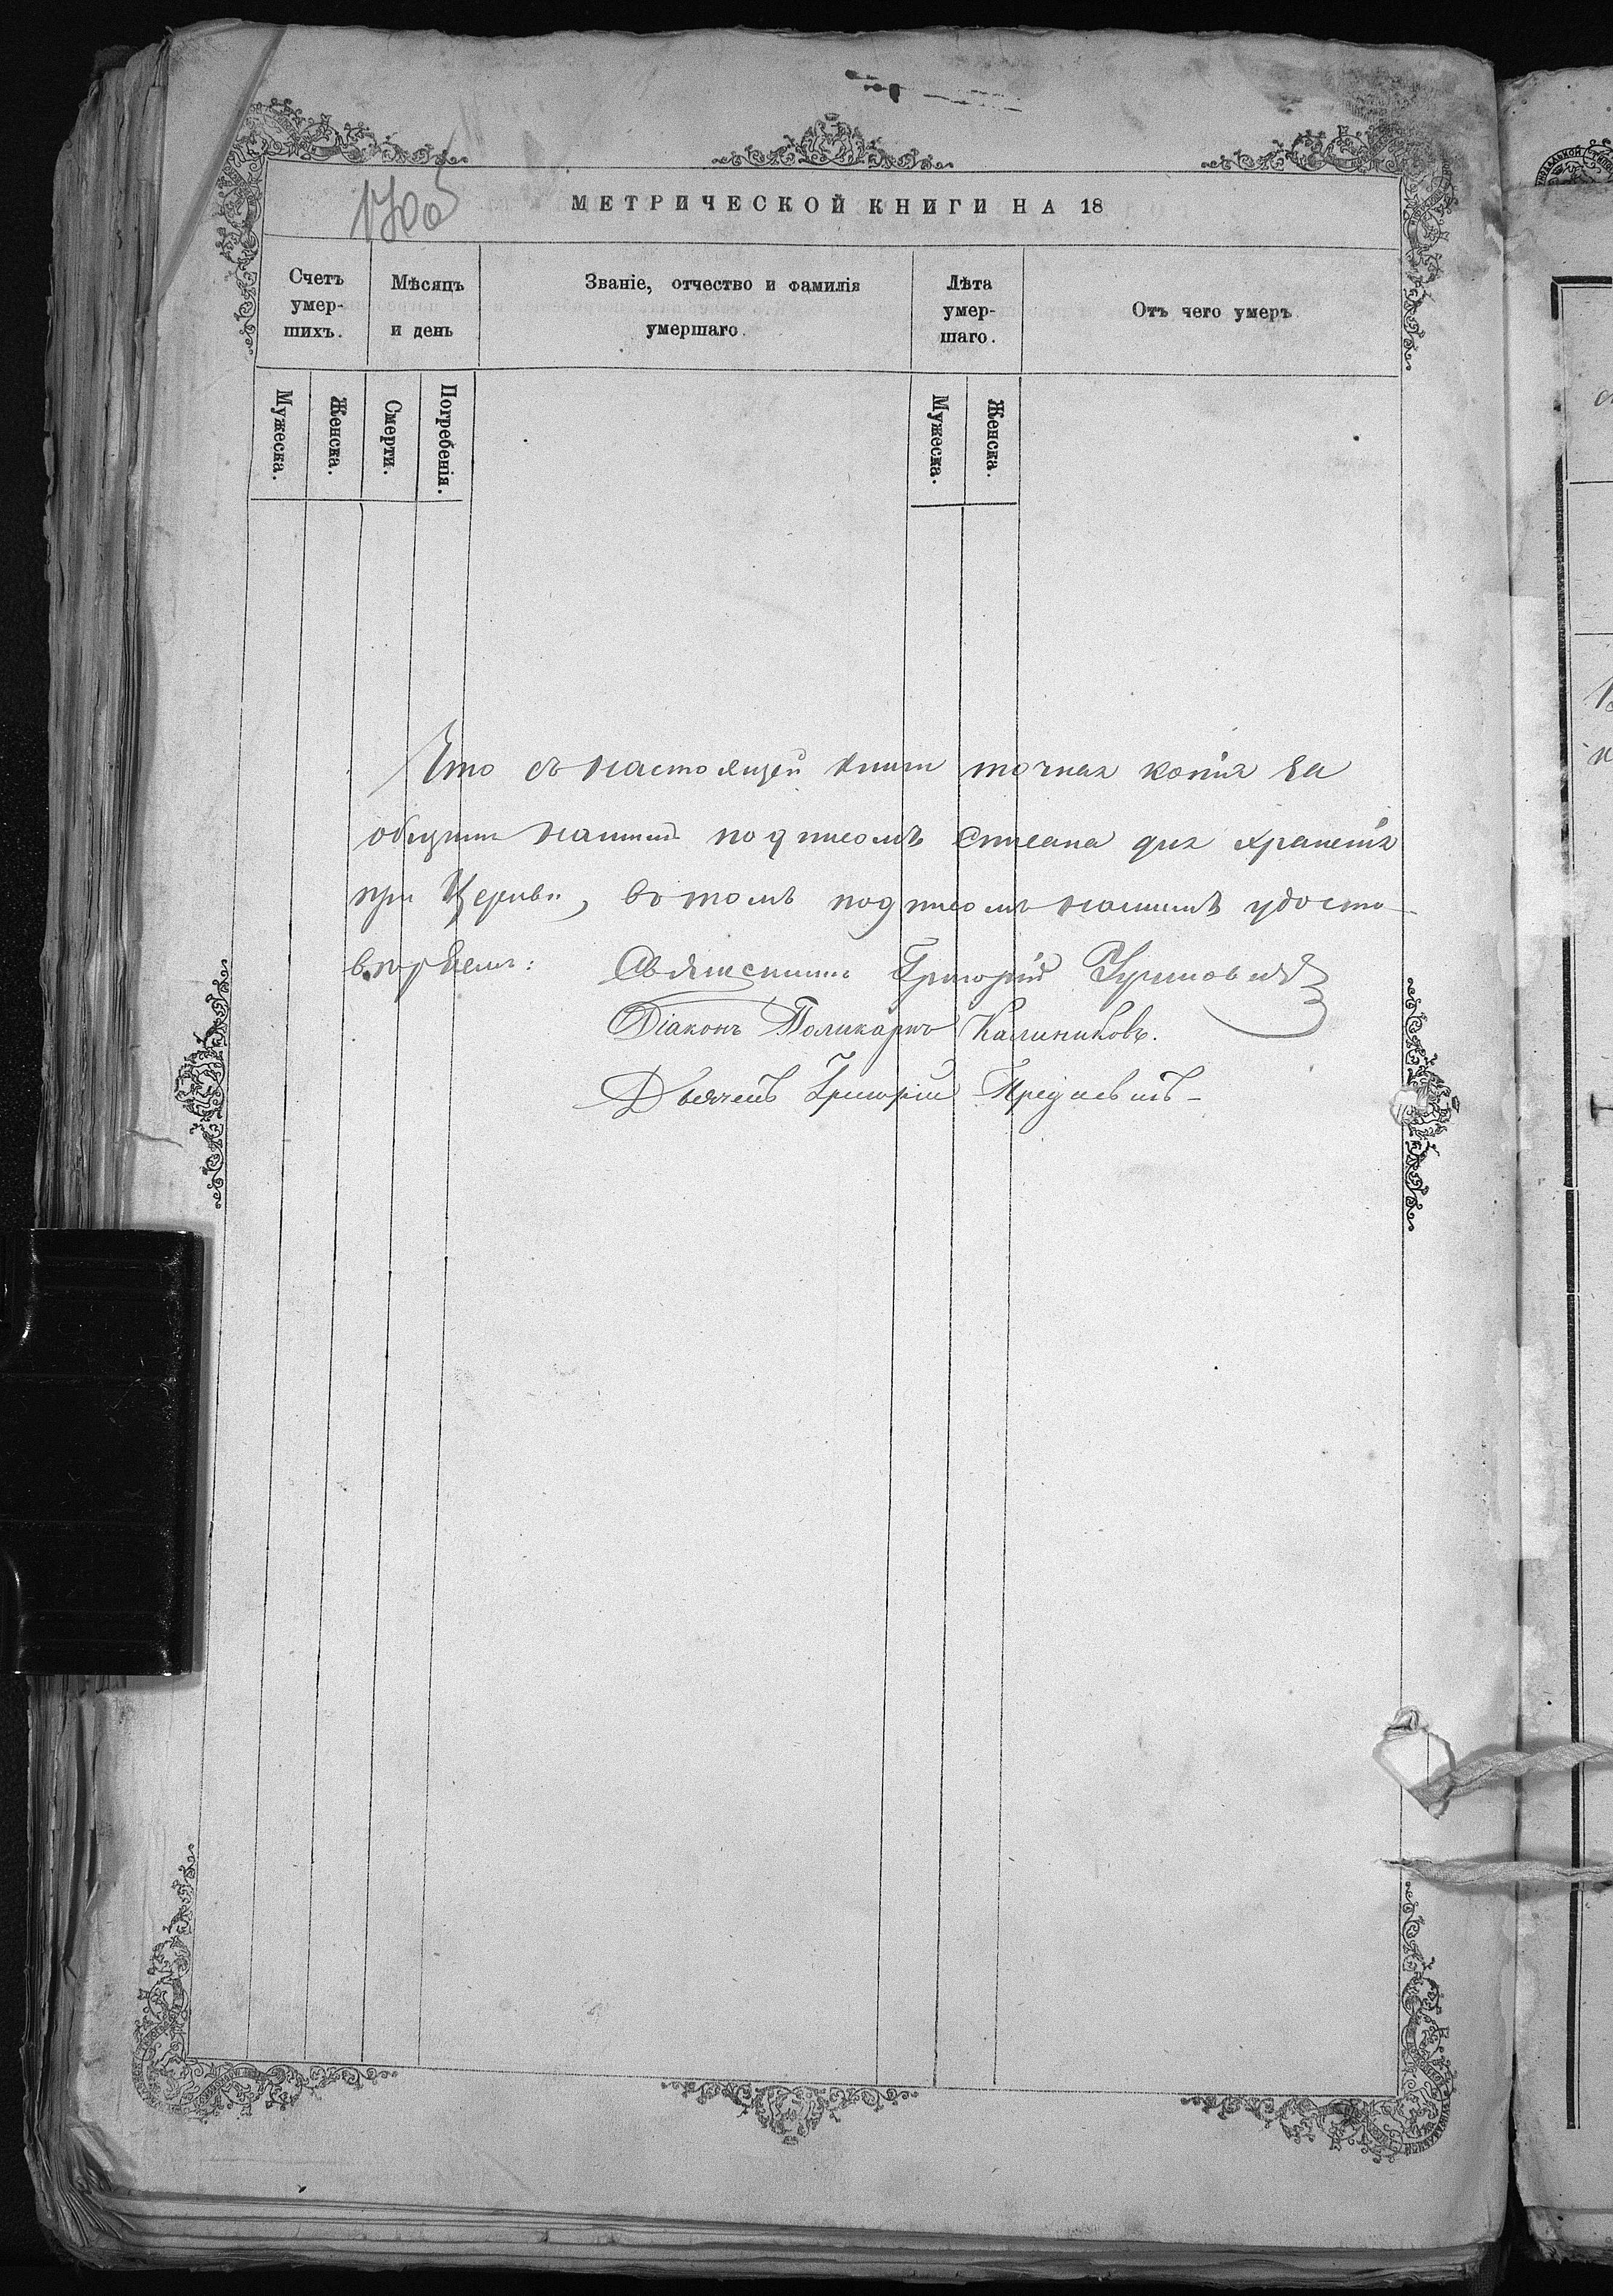 1700
МЕТРИЧЕСКОЙ КНИГИ НА 18
Счетъ умер-шихъ.
Мѣсяцъ и день
Званіе, отчество и фамилія умершаго.
Лѣта умер-шаго.
Отъ чего умеръ.
Мужеска.
Женска.
Смерти.
Погребенія.
Мужеска.
Женска.
Что съ настоящей книги точная копія за
общимъ нашимъ подписомъ списана для храненія
при Церкви, въ томъ подписомъ нашимъ удосто-
вѣряемъ: Священникъ Григорій
Діаконъ Поликарпъ Калиниковъ.
Дьячекъ Григорій